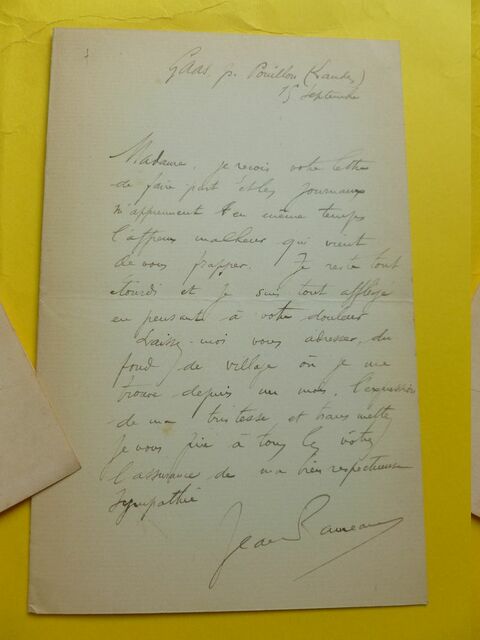 Gaas p. Pouillon (Landes)
15 septembre
Madame, je reçois votre lettre
de faire part et les journaux
m'apprennent en même temps
l'affreux malheur qui vient
de vous frapper. Je reste tout
étourdi et je suis tout affligé
en pensant à votre douleur
Laissez-moi vous adresser, du
fond de village où je me
trouve depuis un mois, l'expression
de ma tristesse et transmettre
je vous prie à tous les vôtres
l'assurance de ma bien respectueuse
sympathie
Jean Rameau